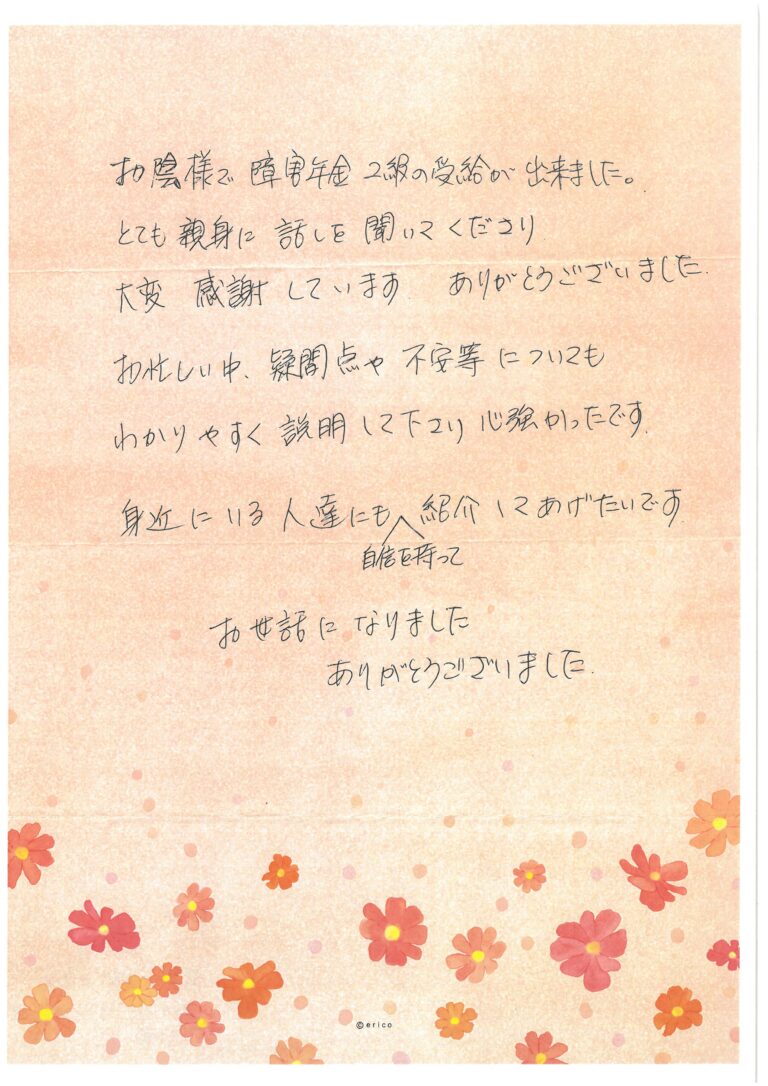 お陰様で 障害年金 2級の受給が 出来ました。
とても 親身に 話しを 聞いてくださり
大変 感謝しています. ありがとうございました.
お忙しい中、疑問点や 不安等についても
わかりやすく 説明して下さり 心強かったです.
身近にいる人達にも 紹介してあげたいです.
自信を持って
お世話に なりました
ありがとうございました.
©erico